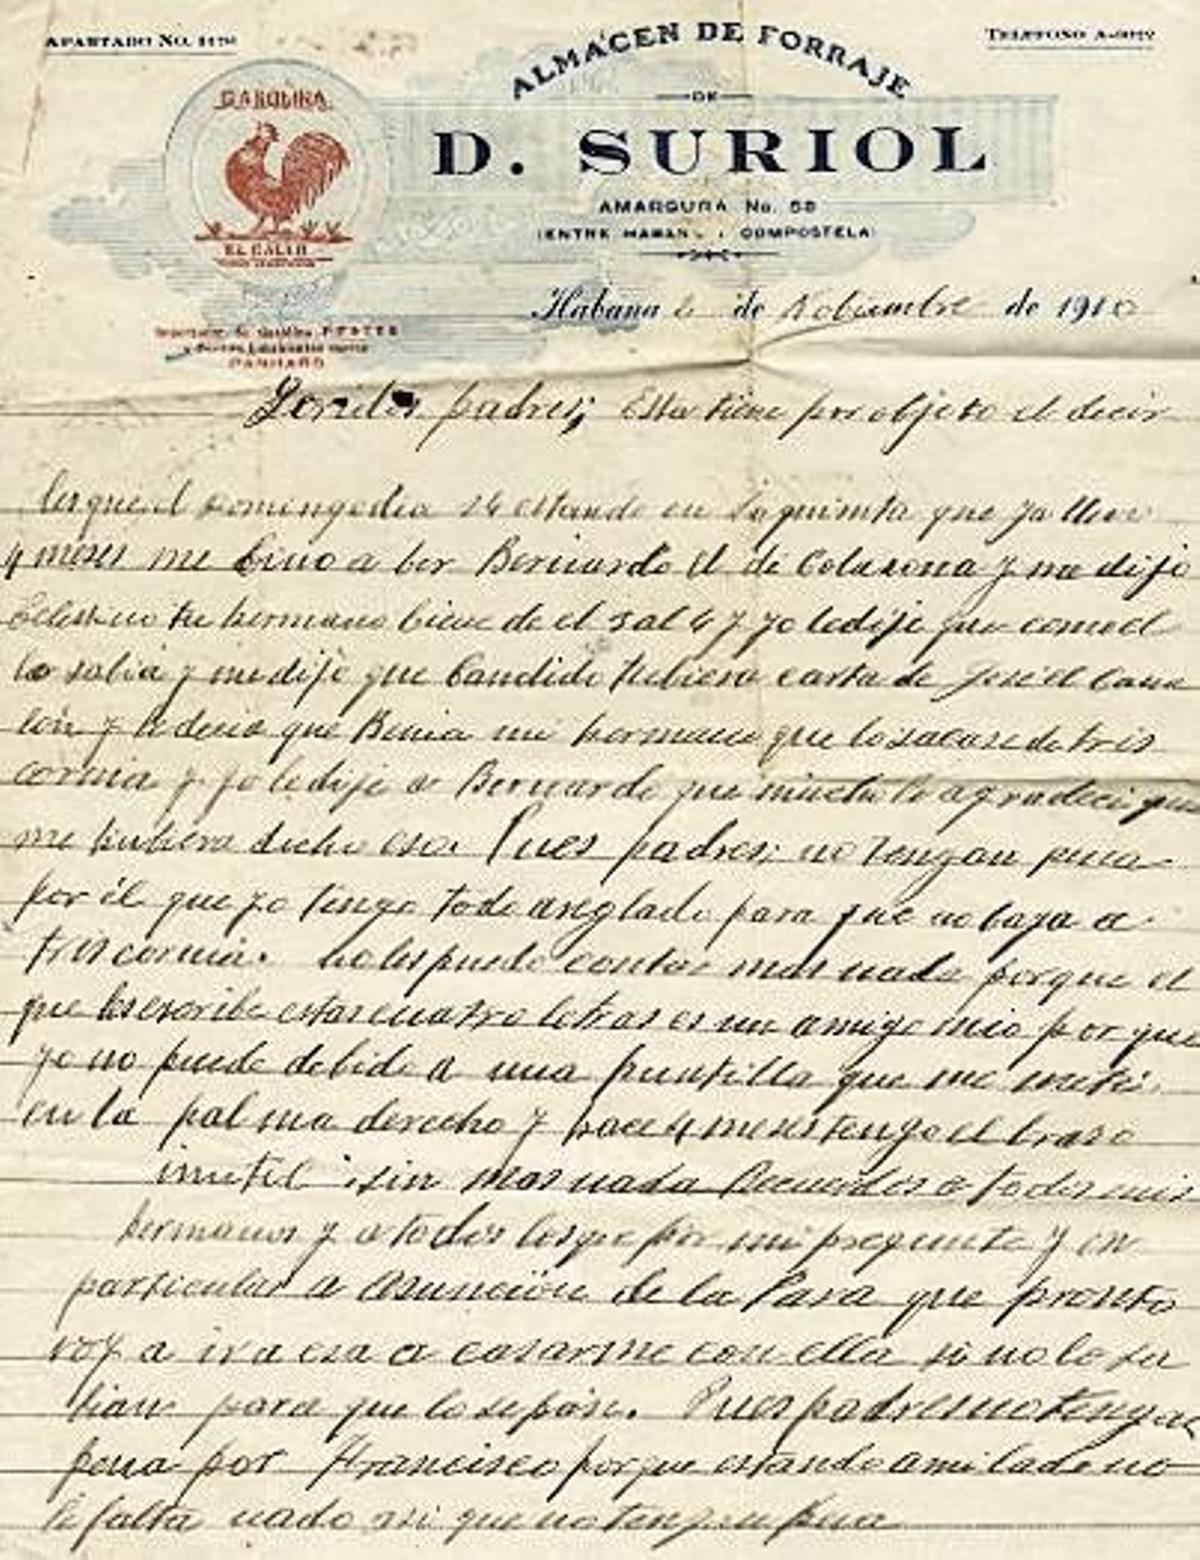 APARTADO No.
TELEFONO A-
ALMACEN DE FORRAJE
DE
D. SURIOL
AMARGURA No. 58
(ENTRE HABANA Y COMPOSTELA)
GASOLINA
EL GALLO
PANHARD
Habana de Nobiembre de 1910
padres; Esta tiene por objeto el decir
les que el domingo dia estando en la quinta que ya llevo
4 meses me bino a ber Bernardo el de Colasona y me dijo
Celestino tu hermano biene de el 3 al 4 y yo le dije que como el
lo sabia y me dijo que Candido tubiera carta de José el
y le decia que Benia mi hermano que lo sacase de tris
cornia y yo le dije a Bernardo que mucho le agradeci que
me hubiera dicho eso. Pues padres; no tengan pena
por él que yo tengo todo areglado para que no baja a
triscornia. no les puedo contar mas nada porque el
que les escribe estas cuatro letras es un amigo mio por que
yo no puedo debido a una puntilla que me meti
en la palma derecho y hace 4 meses tengo el braso
inutil sin mas nada Recuerdos a todos mis
hermanos y a todos los que por mi pregunte y en
particular a Asunción de la Para que pronto
voy a ir a esa a casarme con ella si no lo sa
bian para que lo sepan. Pues padres no tengan
pena por Francisco porque estando a mi lado no
le falta nado asi que no tengan pena